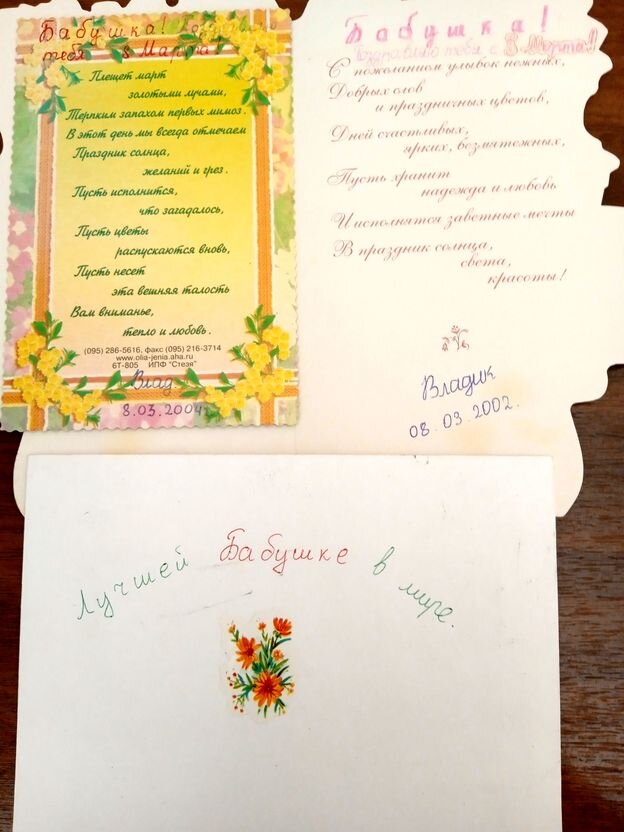 Бабушка! Поздравляю
тебя с 8 Марта!
Плещет март
золотыми лучами,
Терпким запахом первых мимоз.
В этот день мы всегда отмечаем
Праздник солнца,
желаний и грез.
Пусть исполнится,
что загадалось,
Пусть цветы
распускаются вновь,
Пусть несет
эта вешняя талость
Вам вниманье,
тепло и любовь.
(095) 286-5616, факс (095) 216-3714
www.olia-jenia.aha.ru
6Т-805 ИПФ "Стезя"
Влад
8.03.2004
Бабушка!
Поздравляю тебя с 8 Марта!!
С пожеланием улыбок нежных,
Добрых слов
и праздничных цветов,
Дней счастливых,
ярких, безмятежных,
Пусть хранит
надежда и любовь
И исполнятся заветные мечты
В праздник солнца,
света,
красоты!
Владик
08.03.2002.
Лучшей Бабушке в мире.